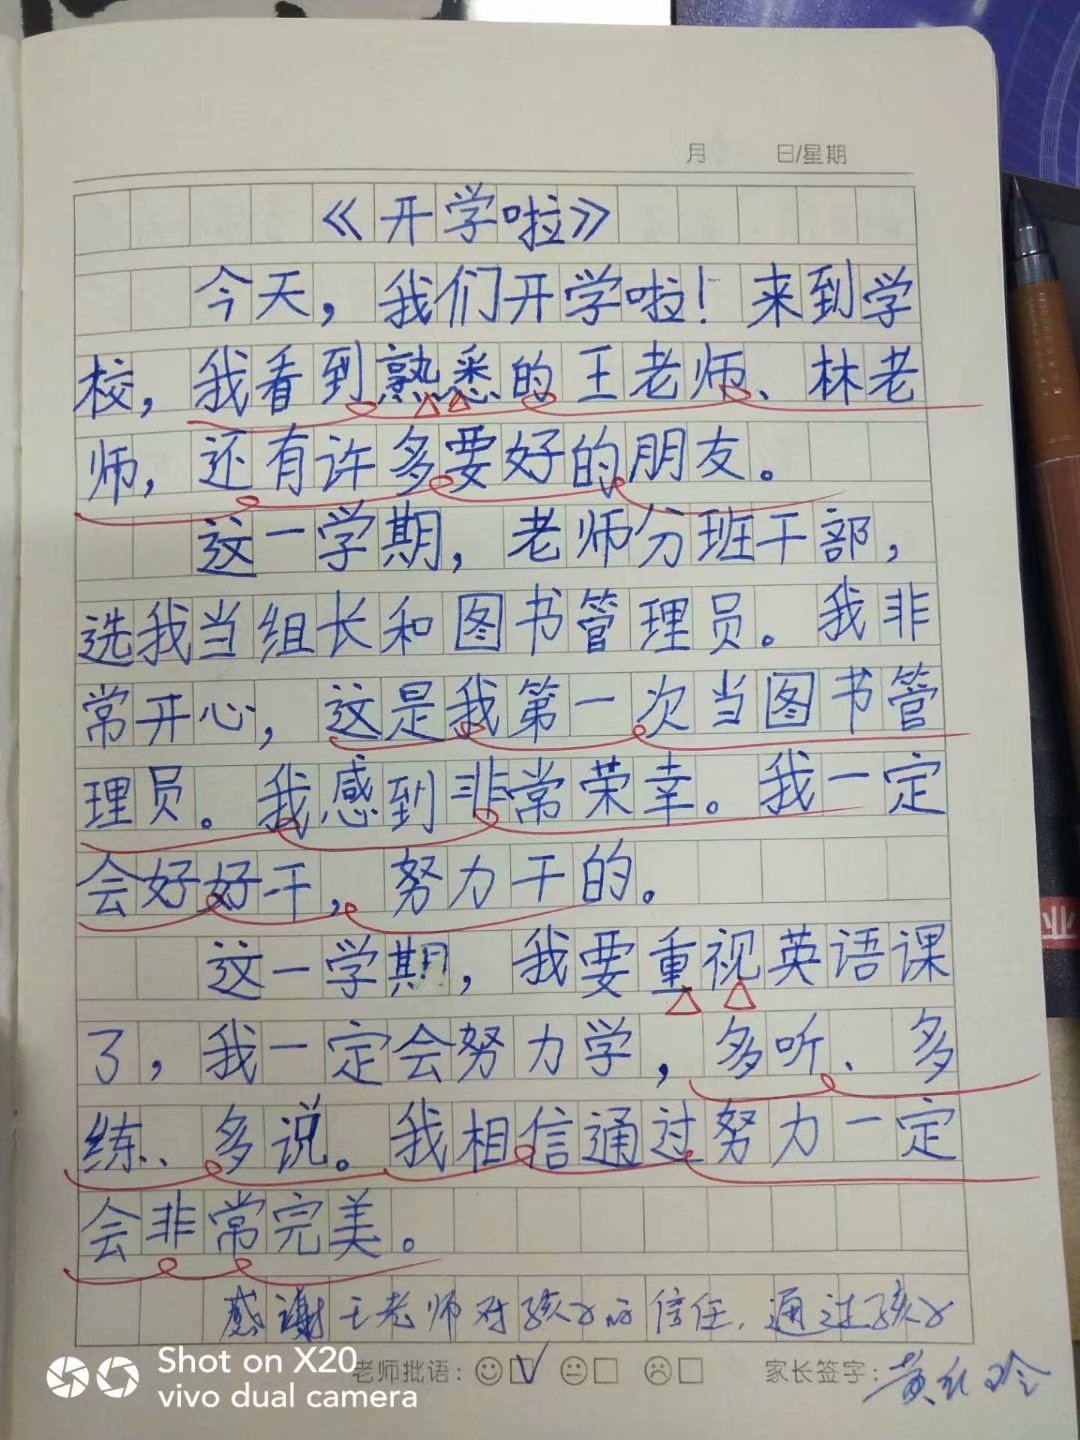 月 日/星期
《开学啦》
今天，我们开学啦！来到学
校，我看到熟悉的王老师、林老
师，还有许多要好的朋友。
这一学期，老师分班干部，
选我当组长和图书管理员。我非
常开心，这是我第一次当图书管
理员。我感到非常荣幸。我一定
会好好干，努力干的。
这一学期，我要重视英语课
了，我一定会努力学，多听、多
练、多说。我相信通过努力一定
会非常完美。
感谢王老师对孩子的信任，通过孩子
老师批语：家长签字：黄
Shot on X20
vivo dual camera
业